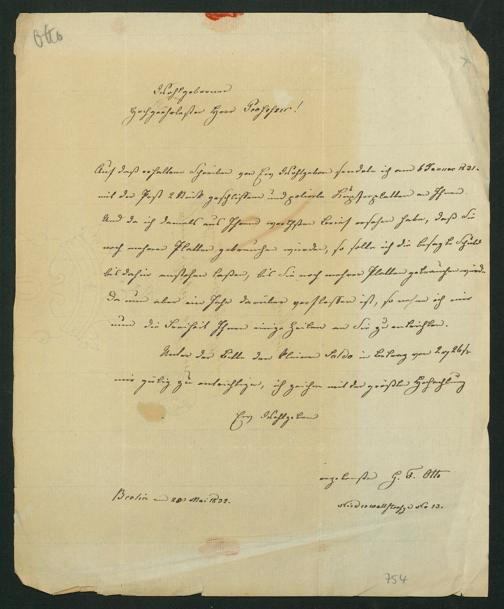 Otto
Wohlgeborner
Hochgeehrtester Herr Professor!
Auf daß erhaltene Schreiben von Ew Wohlgeboren sendete ich am 6 Januar 1831.
mit der Post 2 Stück geschliffene und polirte Kupferplatten an Ihnen.
Und da ich damals aus Ihrem werthesten ersehen habe, daß Sie
noch mehrere Platten gebrauchen würden, so sollte ich die besagte Schuld
bis dahin anstehen laßen, bis Sie noch mehrere Platten gebrauchen würden
da nun aber ein Jahr darüber verflossen ist, so nehme ich mir
nun die Freiheit Ihnen einige Zeilen an Sie zu entrichten.
Unter der Bitte den kleinen Saldo in Betrag von
mir gütig zu, ich zeichne mit der größten Hochachtung
Ew Wohlgeboren
ergebenster G. F. Otto
Niederwallstraße No 13.
Berlin Mai 1832.
754